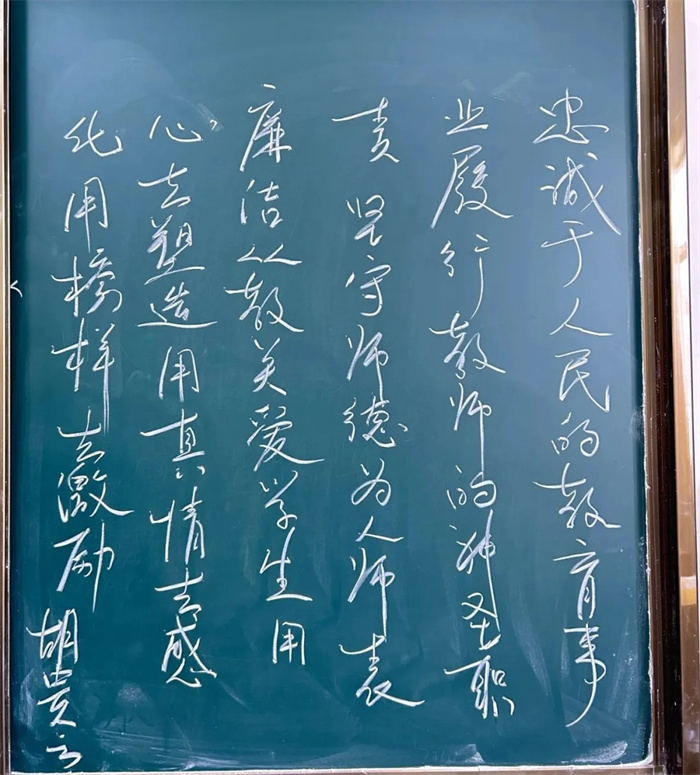 忠诚于人民的教育事
业履行教师的神圣职
责 坚守师德为人师表
廉洁从教关爱学生用
心去塑造用真情去感
化用榜样去激励 胡贵